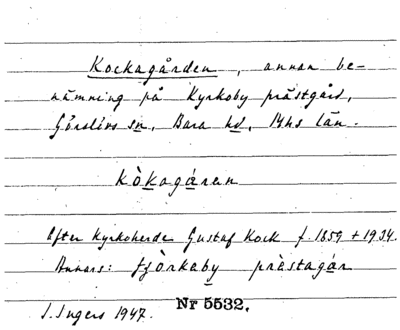 Kockagården, annan be-
nämning på Kyrkoby prästgård,
Görslövs sn, Bara hd, Mhs län.
kòkagáren
Efter kyrkoherde Gustaf Kock f. 1859 + 1934.
Annars: tjòrkeby prèstagár
I. Ingers 1947. Nr 5532.